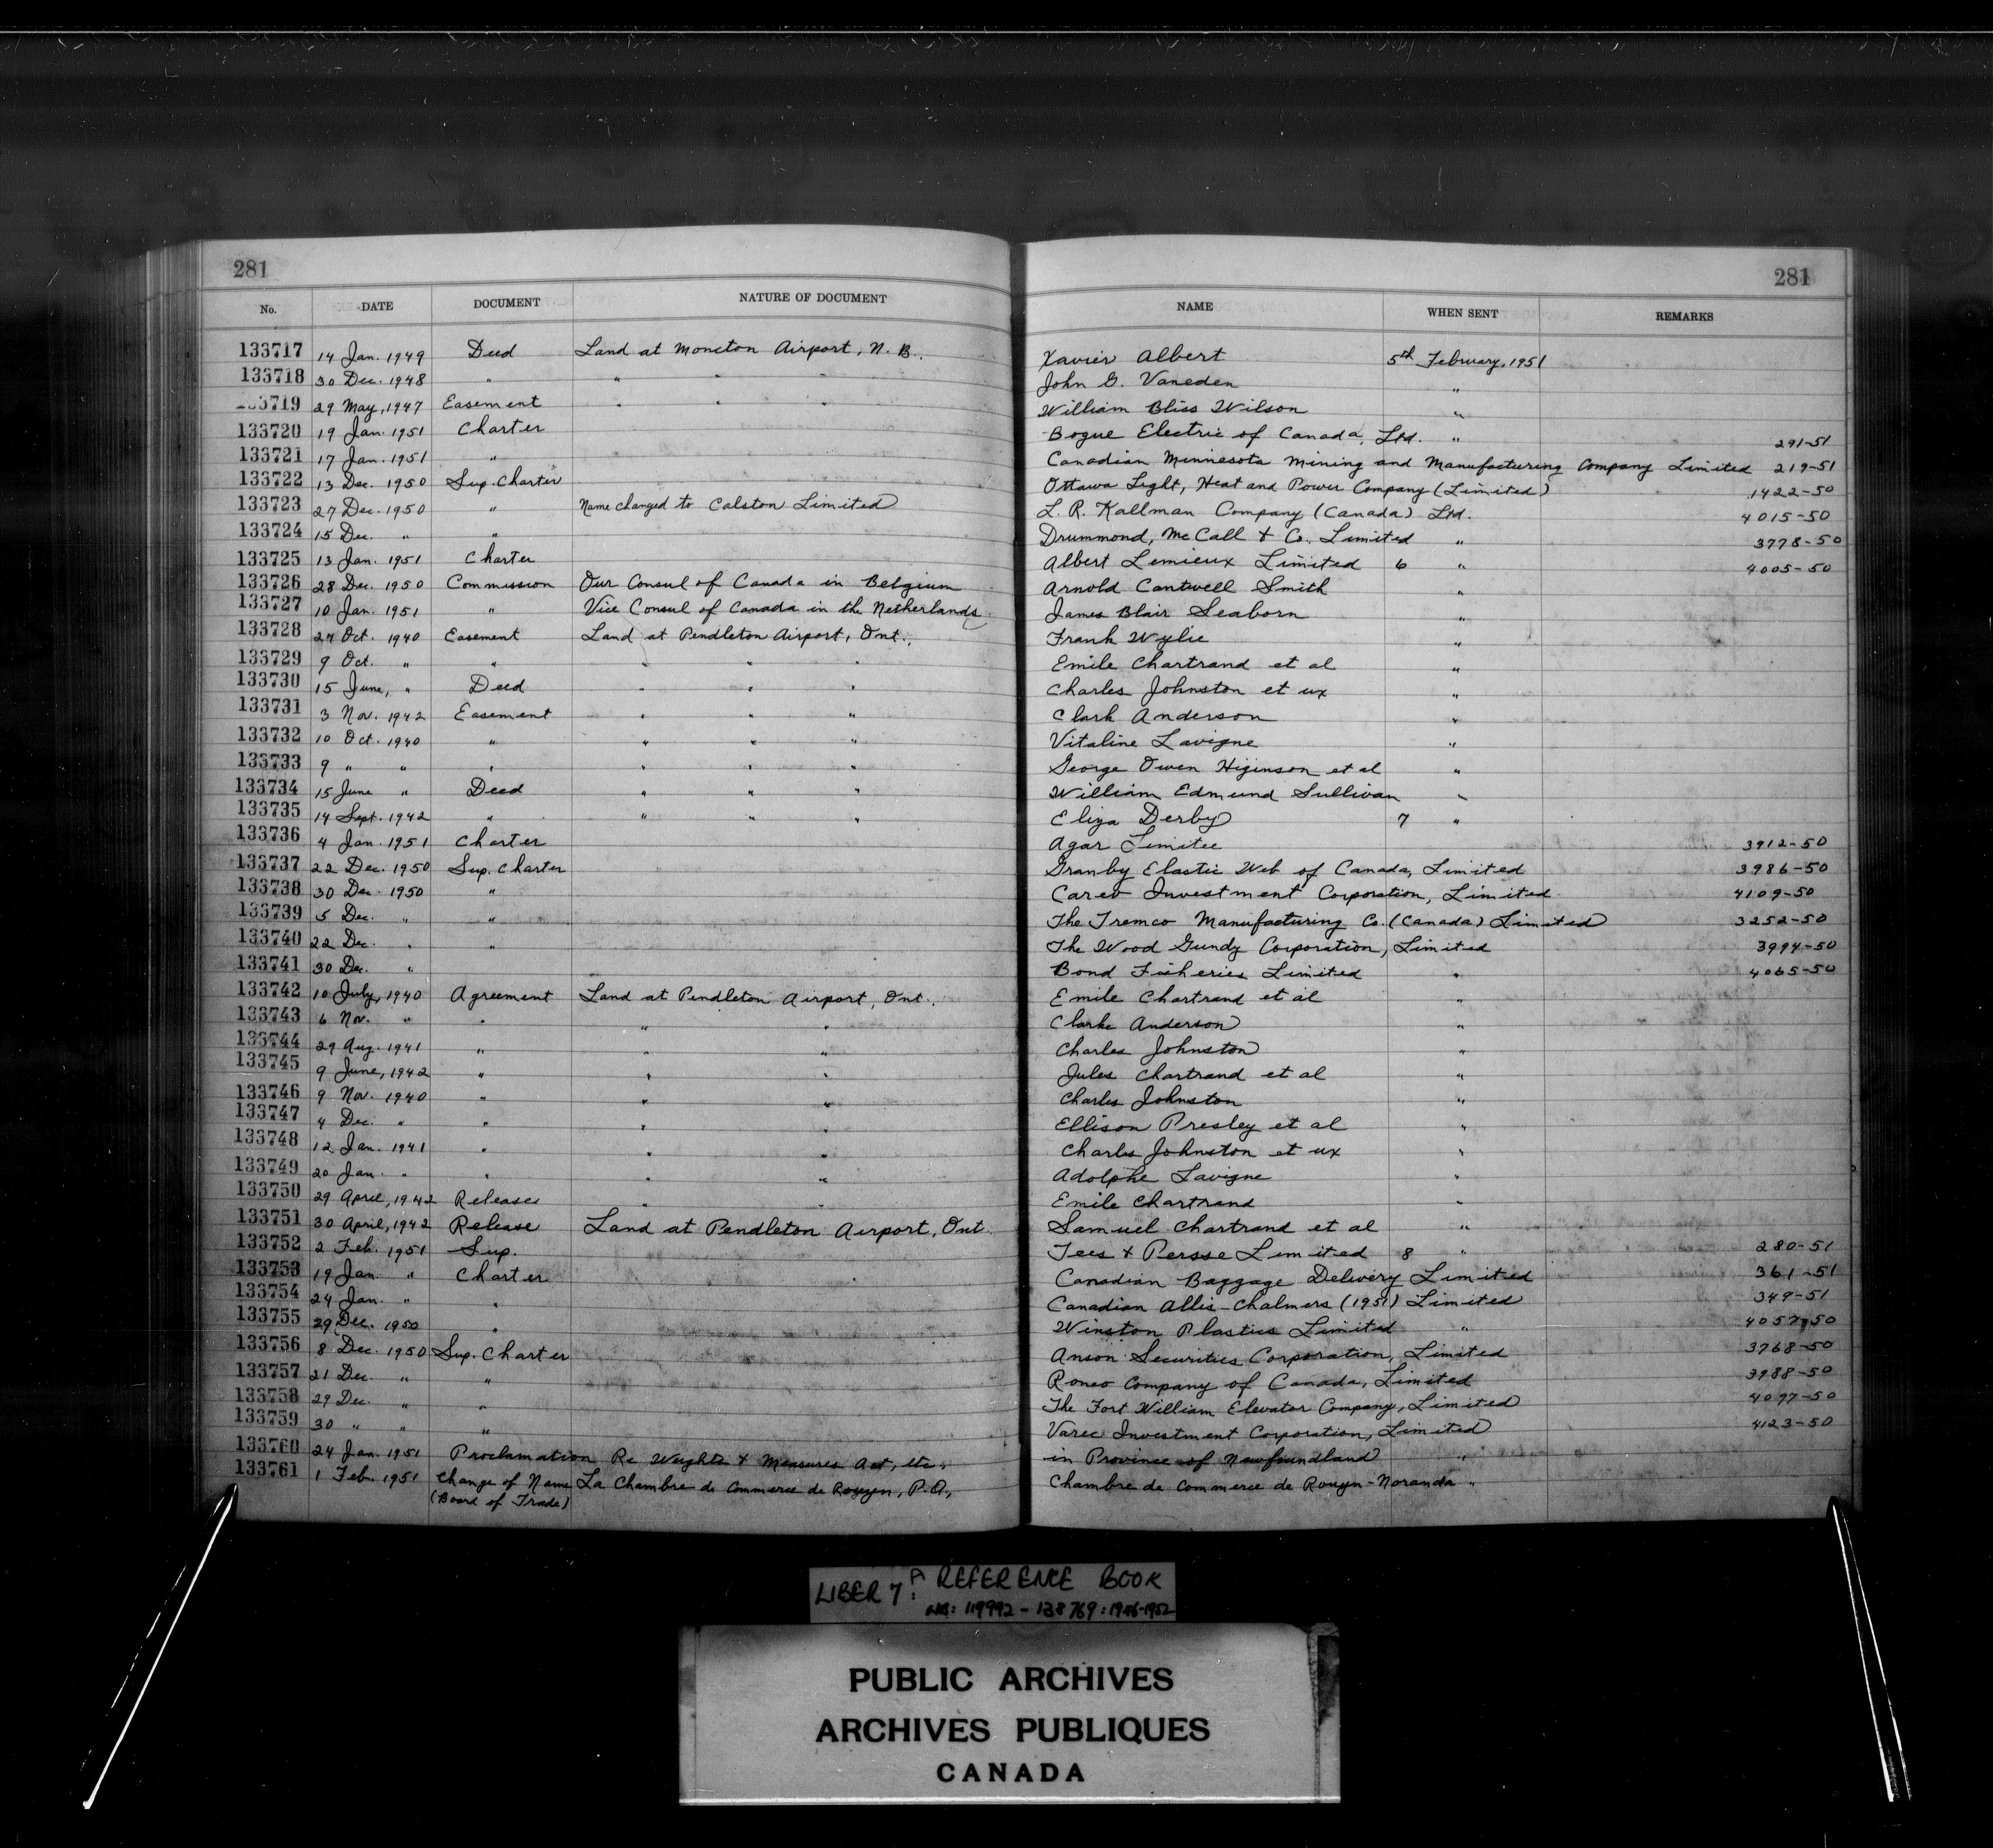 281 281
No. DATE DOCUMENT NATURE OF DOCUMENT NAME WHEN SENT REMARKS
133717 14 Jan. 1949 Deed Land at Moncton Airport, N.B. Xavier Albert 5th February, 1951
133718 30 Dec. 1948 " " " " John G. Vaneden "
133719 29 May, 1947 Easement " " " William Bliss Wilson "
133720 19 Jan. 1951 Charter Bogue Electric of Canada, Ltd. " 291-51
133721 17 Jan. 1951 " Canadian Minnesota Mining and Manufacturing Company Limited 219-51
133722 13 Dec. 1950 Sup. Charter Ottawa Light, Heat and Power Company (Limited) 1422-50
133723 27 Dec. 1950 " Name changed to Calston Limited L. R. Kallman Company (Canada) Ltd. 4015-50
133724 15 Dec. " " Drummond, McCall & Co., Limited " 3778-50
133725 13 Jan. 1951 Charter Albert Lemieux Limited 6 " 4005-50
133726 28 Dec. 1950 Commission Our Consul of Canada in Belgium Arnold Cantwell Smith "
133727 10 Jan. 1951 " Vice Consul of Canada in the Netherlands James Blair Seaborn "
133728 24 Oct. 1940 Easement Land at Pendleton Airport, Ont., Frank Wylie "
133729 9 Oct. " " " " " Emile Chartrand et al "
133730 15 June, " Deed " " " Charles Johnston et ux "
133731 3 Nov. 1942 Easement " " " Clark Anderson "
133732 10 Oct. 1940 " " " " Vitaline Lavigne "
133733 9 " " " " " " George Owen Higinson et al "
133734 15 June " Deed " " " William Edmund Sullivan "
133735 14 Sept. 1942 " " " " Eliza Derby 7 "
133736 4 Jan. 1951 Charter Agar Limitee 3912-50
133737 22 Dec. 1950 Sup. Charter Granby Elastic Web of Canada, Limited 3986-50
133738 30 Dec. 1950 " Careo Investment Corporation, Limited 4109-50
133739 5 Dec. " " The Tremco Manufacturing Co. (Canada) Limited 3252-50
133740 22 Dec. " " The Wood Gundy Corporation, Limited 3994-50
133741 30 Dec. " Bond Fisheries Limited " 4065-50
133742 10 July, 1940 Agreement Land at Pendleton Airport, Ont., Emile Chartrand et al "
133743 6 Nov. " " " " Clarke Anderson "
133744 29 Aug. 1941 " " " Charles Johnston "
133745 9 June, 1942 " " " Jules Chartrand et al "
133746 9 Nov. 1940 " " " Charles Johnston "
133747 4 Dec. " " " " Ellison Presley et al "
133748 12 Jan. 1941 " " " Charles Johnston et ux "
133749 20 Jan. " " " " Adolphe Lavigne "
133750 29 April, 1942 Releases " " Emile Chartrand "
133751 30 April, 1942 Release Land at Pendleton Airport, Ont. Samuel Chartrand et al "
133752 2 Feb. 1951 Sup. Tees & Persse Limited 8 " 280-51
133753 19 Jan. " Charter Canadian Baggage Delivery Limited 361-51
133754 24 Jan. " " Canadian Allis-Chalmers (1951) Limited 349-51
133755 29 Dec. 1950 " Winston Plastics Limited " 4057-50
133756 8 Dec. 1950 Sup. Charter Anson Securities Corporation, Limited 3768-50
133757 21 Dec. " " Roneo Company of Canada, Limited 3988-50
133758 29 Dec. " " The Fort William Elevator Company, Limited 4097-50
133759 30 " " " Varec Investment Corporation, Limited 4123-50
133760 24 Jan. 1951 Proclamation Re Weights & Measures Act, etc., in Province of Newfoundland "
133761 1 Feb. 1951 Change of Name La Chambre de Commerce de Rouyn, P.Q., Chambre de Commerce de Rouyn-Noranda "
(Board of Trade)
LIBER 7: A REFERENCE BOOK
NOS: 119992 - 138769: 1946-1952
PUBLIC ARCHIVES
ARCHIVES PUBLIQUES
CANADA